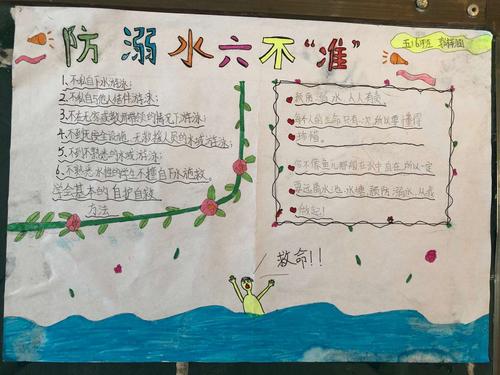 防溺水六不“准”
五(6)班
1、不私自下水游泳；
2、不私自与他人结伴游泳；
3、不在无家长或教师带领的情况下游泳；
4、不到无安全设施、无救援人员的水域游泳；
5、不到不熟悉的水域游泳；
6、不熟悉水性的学生不擅自下水施救。
学会基本的自护自救
方法
预防溺水人人有责，
每个人的生命只有一次，所以要懂得
珍惜。
你不像鱼儿那样在水中自在，所以一定
要远离水池、水塘，预防溺水，从我
做起！
救命！！